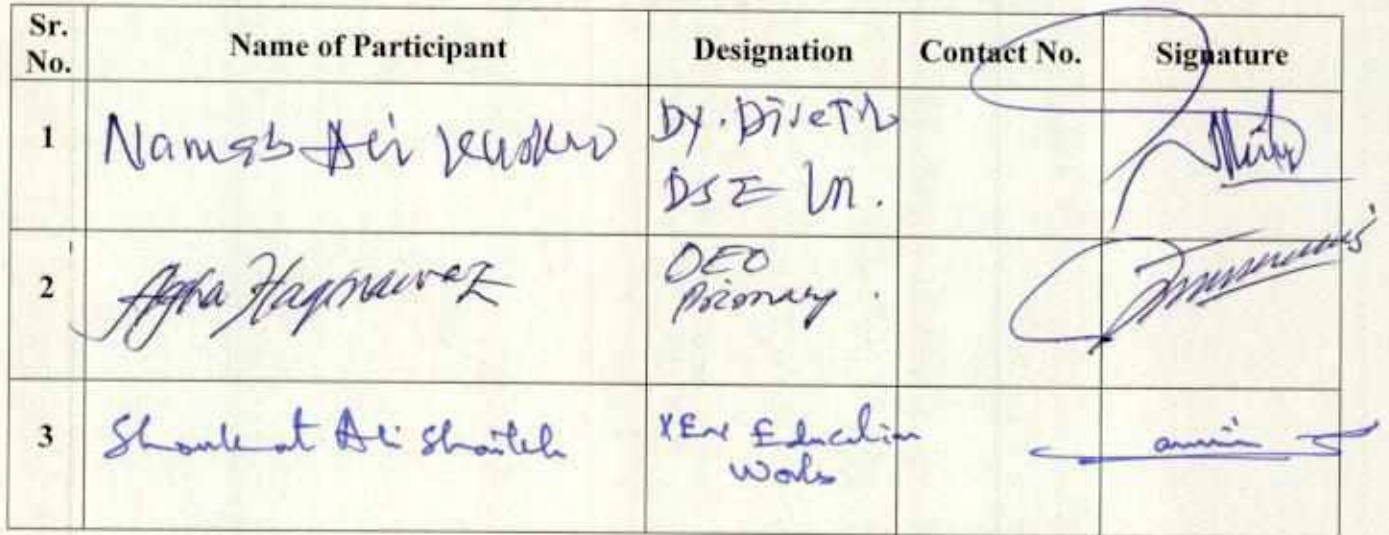 Sr. No. Name of Participant Designation Contact No. Signature
1 Ali Dy.
DSE
2 Agha Haqnawaz DEO
Primary.
3 Shoukat Ali Shaikh XEN Education
Works